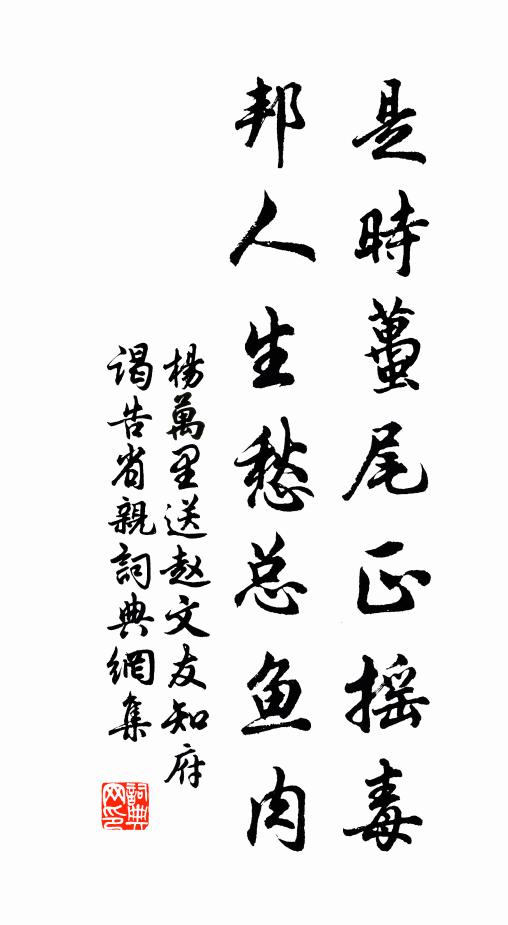 是時蠆尾正摇毒
邦人生愁总鱼肉
楊萬里送赵文友知府
谒告省親詞典網集
詞典网印